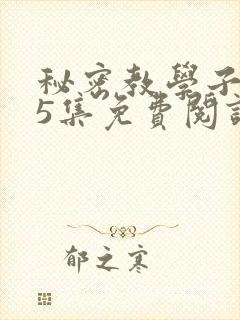 秘密教學子
5集免費閱
郁之寒